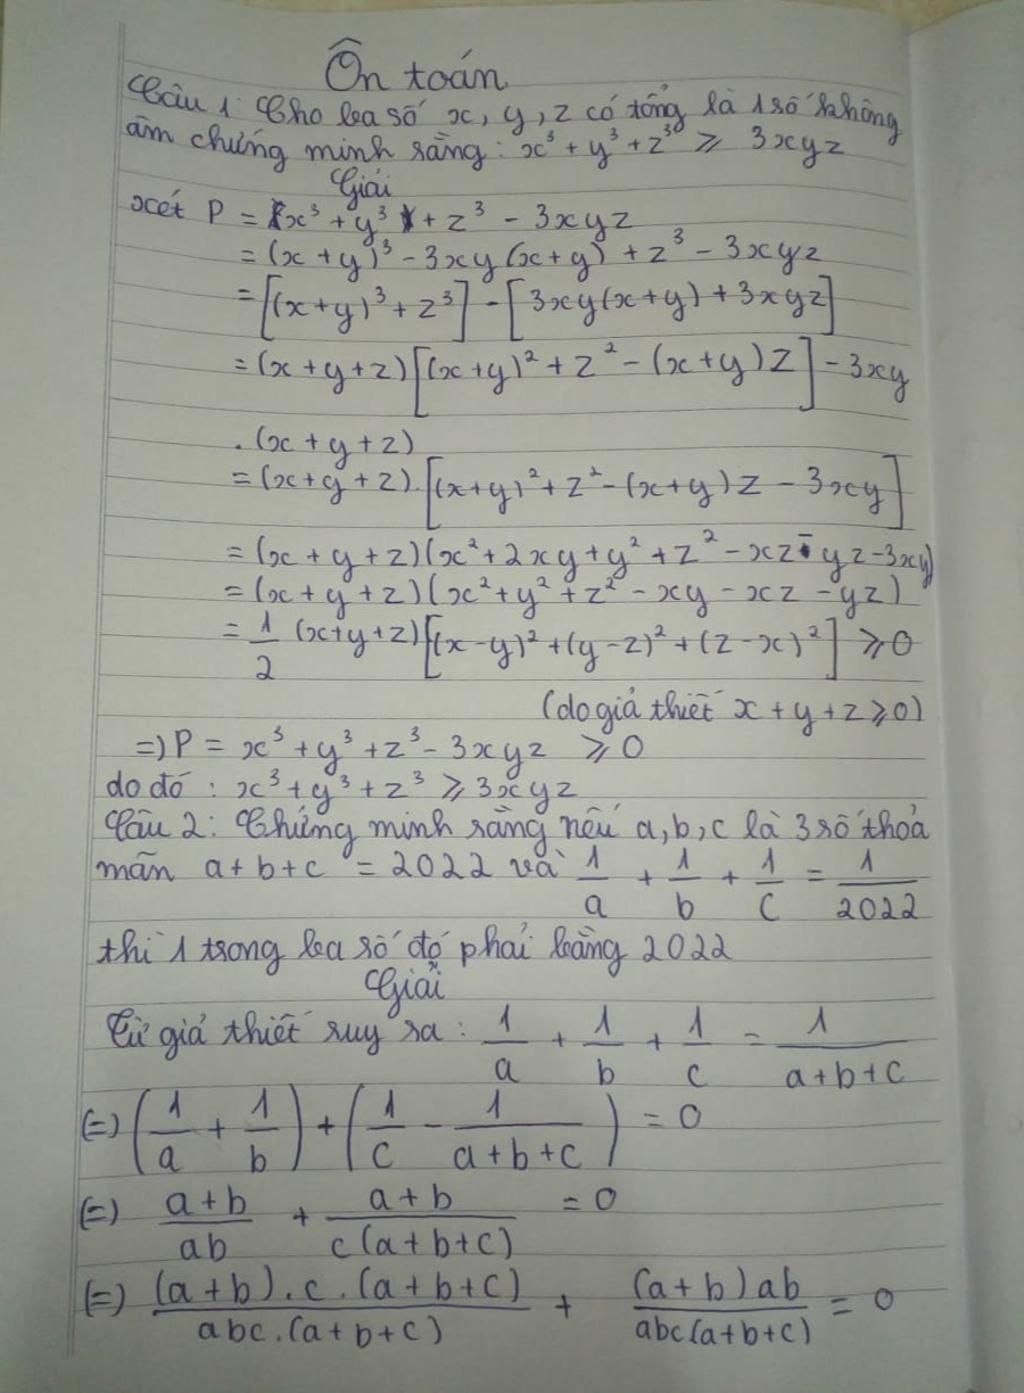 Ôn toán
Câu 1: Cho ba số x, y, z có tổng là 1 số không
âm chứng minh rằng: x³ + y³ + z³ ⩾ 3xyz
Giải
xét P = x³ + y³ + z³ - 3xyz
= (x + y)³ - 3xy(x + y) + z³ - 3xyz
= [(x+y)³ + z³] - [3xy(x+y) + 3xyz]
= (x + y + z)[(x+y)² + z² - (x+y)z] - 3xy
. (x + y + z)
= (x + y + z).[(x+y)² + z² - (x+y)z - 3xy]
= (x + y + z)(x² + 2xy + y² + z² - xz - yz - 3xy)
= (x + y + z)(x² + y² + z² - xy - xz - yz)
= 1/2 (x+y+z)[(x-y)² + (y-z)² + (z-x)²] ⩾ 0
(do giả thiết x + y + z ⩾ 0)
=) P = x³ + y³ + z³ - 3xyz ⩾ 0
do đó : x³ + y³ + z³ ⩾ 3xyz
Câu 2: Chứng minh rằng nếu a, b, c là 3 số thoả
mãn a + b + c = 2022 và 1/a + 1/b + 1/c = 1/2022
thì 1 trong ba số đó phải bằng 2022
Giải
Từ giả thiết suy ra : 1/a + 1/b + 1/c = 1/(a+b+c)
(=) (1/a + 1/b) + (1/c - 1/(a+b+c)) = 0
(=) (a+b)/ab + (a+b)/(c(a+b+c)) = 0
(=) ((a+b).c.(a+b+c))/(abc.(a+b+c)) + ((a+b)ab)/(abc(a+b+c)) = 0